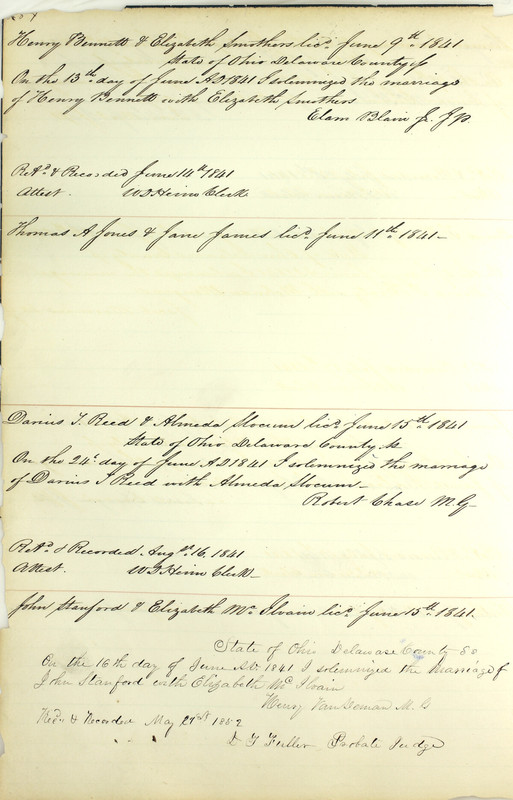 Henry Bennett & Elizabeth Smothers licd. June 9th. 1841
State of Ohio Delaware County ss
On the 13th. day of June A.D 1841 I solemnized the marriage
of Henry Bennett with Elizabeth Smothers
Elam Blain Jr. J.P.
Retd. & Recorded June 14th 1841
Attest. Clerk
Thomas A Jones & Jane James licd. June 11th. 1841-
Darius T. Reed & Almeda Slocum licd. June 15th. 1841
State of Ohio Delaware County ss
On the 24t. day of June A.D 1841 I solemnized the marriage
of Darius T Reed with Almeda Slocum-
Robert Chase M.G-
Retd. & Recorded. Augst. 16, 1841
Attest. Clerk-
John Stanford & Elizabeth Mc Ilvain licd. June 15th. 1841-
State of Ohio Delaware County SS
On the 16th day of June A.D. 1841 I solemnized the Marriage of
John Stanford with Elizabeth Mc Ilvain
Henry Van Deman M. G
Recd. & Recorded May 29st 1852
D T Fuller Probate Judge